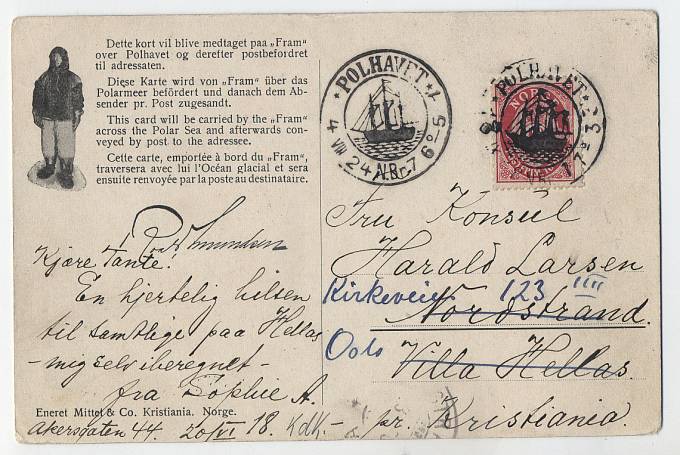 Dette kort vil blive medtaget paa „Fram"
over Polhavet og derefter postbefordret
til adressaten.
Diese Karte wird von „Fram" über das
Polarmeer befördert und danach dem Ab-
sender pr. Post zugesandt.
This card will be carried by the „Fram"
across the Polar Sea and afterwards con-
veyed by post to the adressee.
Cette carte, emportée à bord du „Fram",
traversera avec lui l'Océan glacial et sera
ensuite renvoyée par la poste au destinataire.
Roald Amundsen
Kjære Tante!
En hjertelig hilsen
til samtlige paa Hellas
- mig selv iberegnet -
fra Sophie A.
Eneret Mittet & Co. Kristiania. Norge.
Akersgaten 44. 20/VI 18.
POLHAVET
4 VIII 24 N.Br. 7 6° 5
POLHAVET
NORGE
Fru Konsul
Harald Larsen
Kirkeveien 123 IIII
Nordstrand.
Oslo
Villa Hellas.
pr. Kristiania.